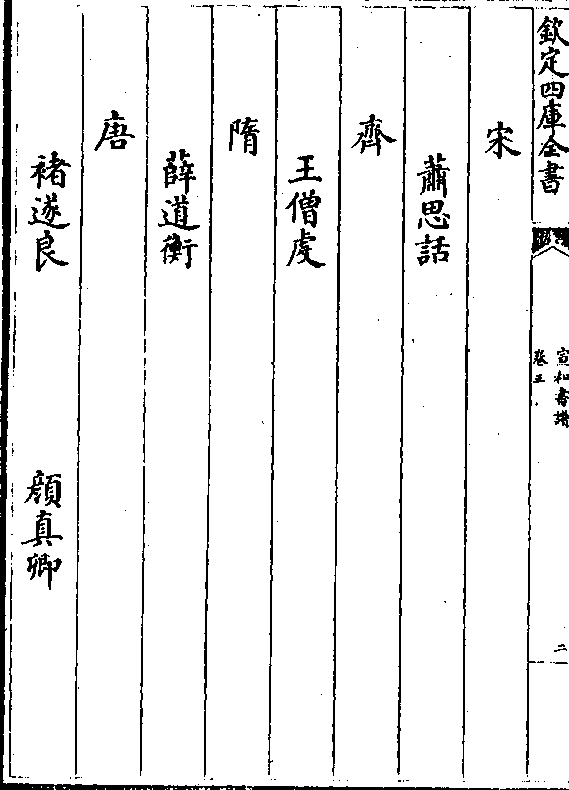 欽定四庫全書
宣和書譜
卷三
二
宋
蕭思話
齊
王僧虔
隋
薛道衡
唐
褚遂良 顔真卿